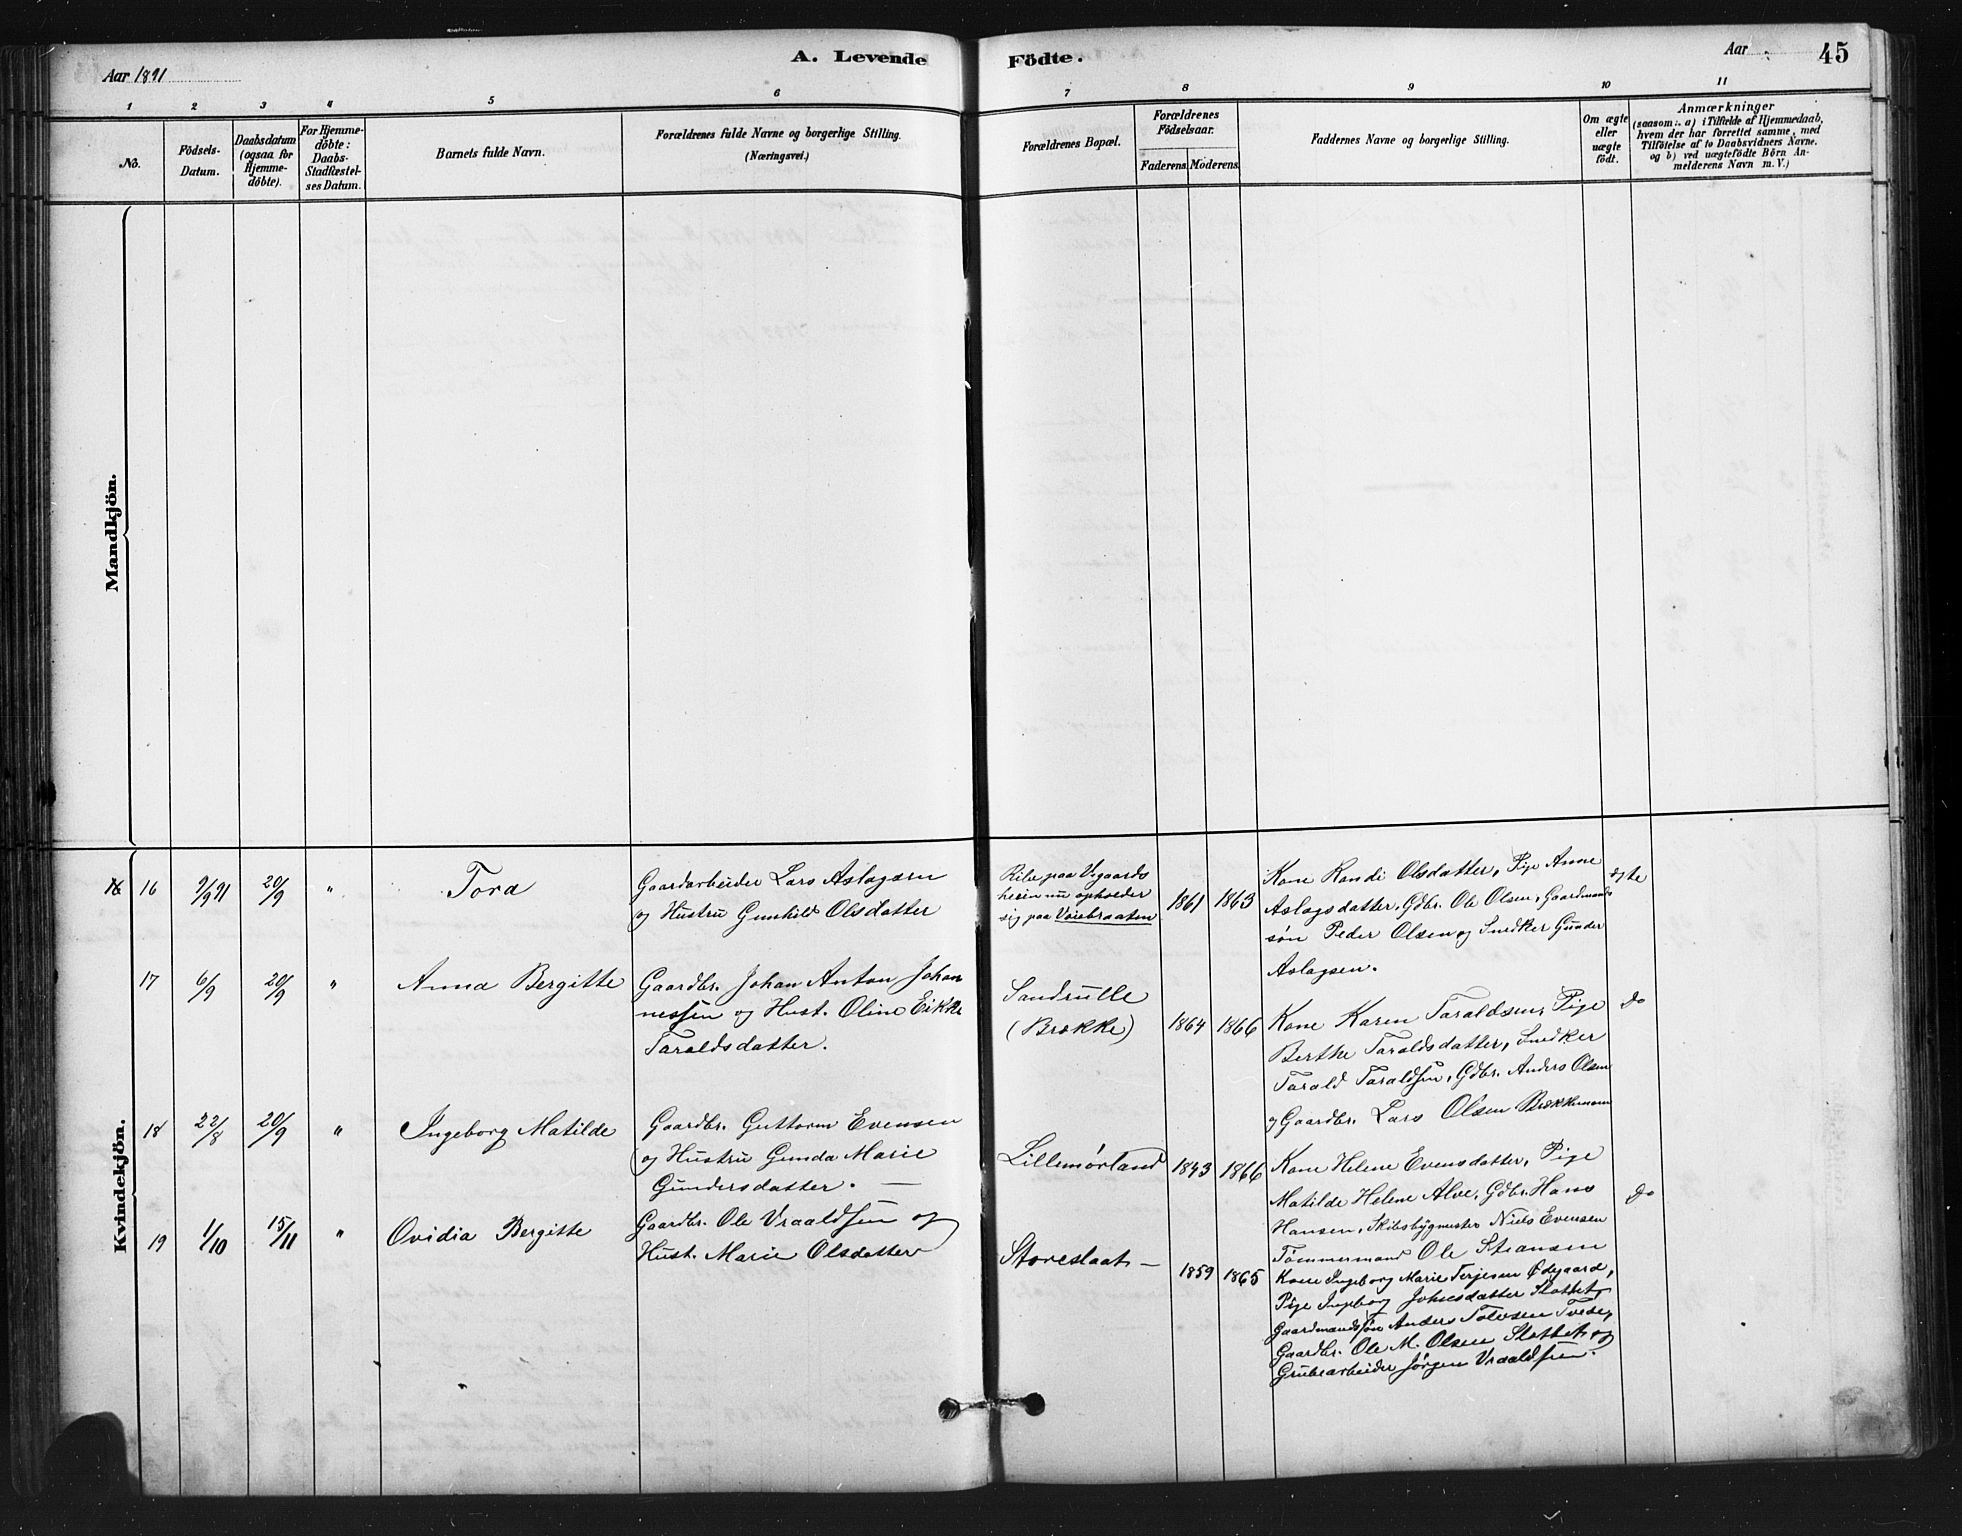 Aar 1891
A. Levende Födte.
Aar
45
1 2 3 4 5 6 7 8 9 10 11
No.
Födsels-Datum.
Daabsdatum (ogsaa for Hjemme-döbte).
For Hjemme-döbte: Daabs-Stadfæstel-ses Datum.
Barnets fulde Navn.
Forældrenes fulde Navne og borgerlige Stilling.
(Næringsvei.)
Forældrenes Bopæl.
Forældrenes Födselsaar.
Faderens. Moderens.
Faddernes Navne og borgerlige Stilling.
Om ægte eller uægte födt.
Anmærkninger
(saasom: a) i Tilfælde af Hjemmedaab,
hvem der har forrettet samme, med
Tilföielse af to Daabsvidners Navne,
og b) ved uægtefödte Börn An-
melderens Navn m. V.)
Mandkjön.
Kvindekjön.
16 9/9 91 20/9 " Tora
Gaardarbeider Lars Aslagsen
og Hustru Gunhild Olsdatter
heien nu opholder
sig paa Voiebraaten
1861 1863
Kone Randi Olsdatter, Pige Anne
Aslagsdatter, Gdbr. Ole Olsen, Gaardmands
søn Peder Olsen og Snedker Gunder
Aslagsen.
ægte
17 6/9 20/9 " Anna Bergitte
Gaardbr. Johan Anton Johan
nessen og Hust. Oline Eikke
Taraldsdatter.
Sandrulle
(Brokke)
1864 1866
Kone Karen Taraldsen, Pige
Berthe Taraldsdatter, Snedker
Tarald Taraldsen, Gdbr. Anders Olsen
og Gaardbr. Lars Olsen
do
18 22/8 20/9 " Ingeborg Matilde
Gaardbr. Guttorm Evensen
og Hustru Gunda Marie
Gundersdatter. —
Lillemørland
1843 1866
Kone Helene Evensdatter, Pige
Matilde Helene Alve, Gdbr. Hans
Hansen, Skibsbygmester Niels Evensen
Tømmermand Ole Stiansen
do
19 1/10 15/11 " Ovidia Bergitte
Gaardbr. Ole Vraaldsen og
Hust. Marie Olsdatter
Storeslaat —
1859 1865
Kone Ingeborg Marie Terjesen Ødegaard,
Pige Ingeborg Johnsdatter Slottet
Gaardmandssøn Anders Tolvsen Tvede,
Gaardbr. Ole M. Olsen Slottet og
Grubearbeider Jørgen Vraaldsen.